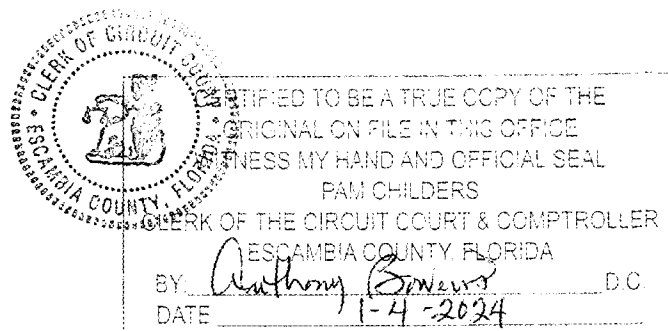 CLERK OF CIRCUIT COURT
ESCAMBIA COUNTY, FLORIDA
CERTIFIED TO BE A TRUE COPY OF THE
ORIGINAL ON FILE IN THIS OFFICE
WITNESS MY HAND AND OFFICIAL SEAL
PAM CHILDERS
CLERK OF THE CIRCUIT COURT & COMPTROLLER
ESCAMBIA COUNTY, FLORIDA
BY: Anthony D.C.
DATE 1-4-2024